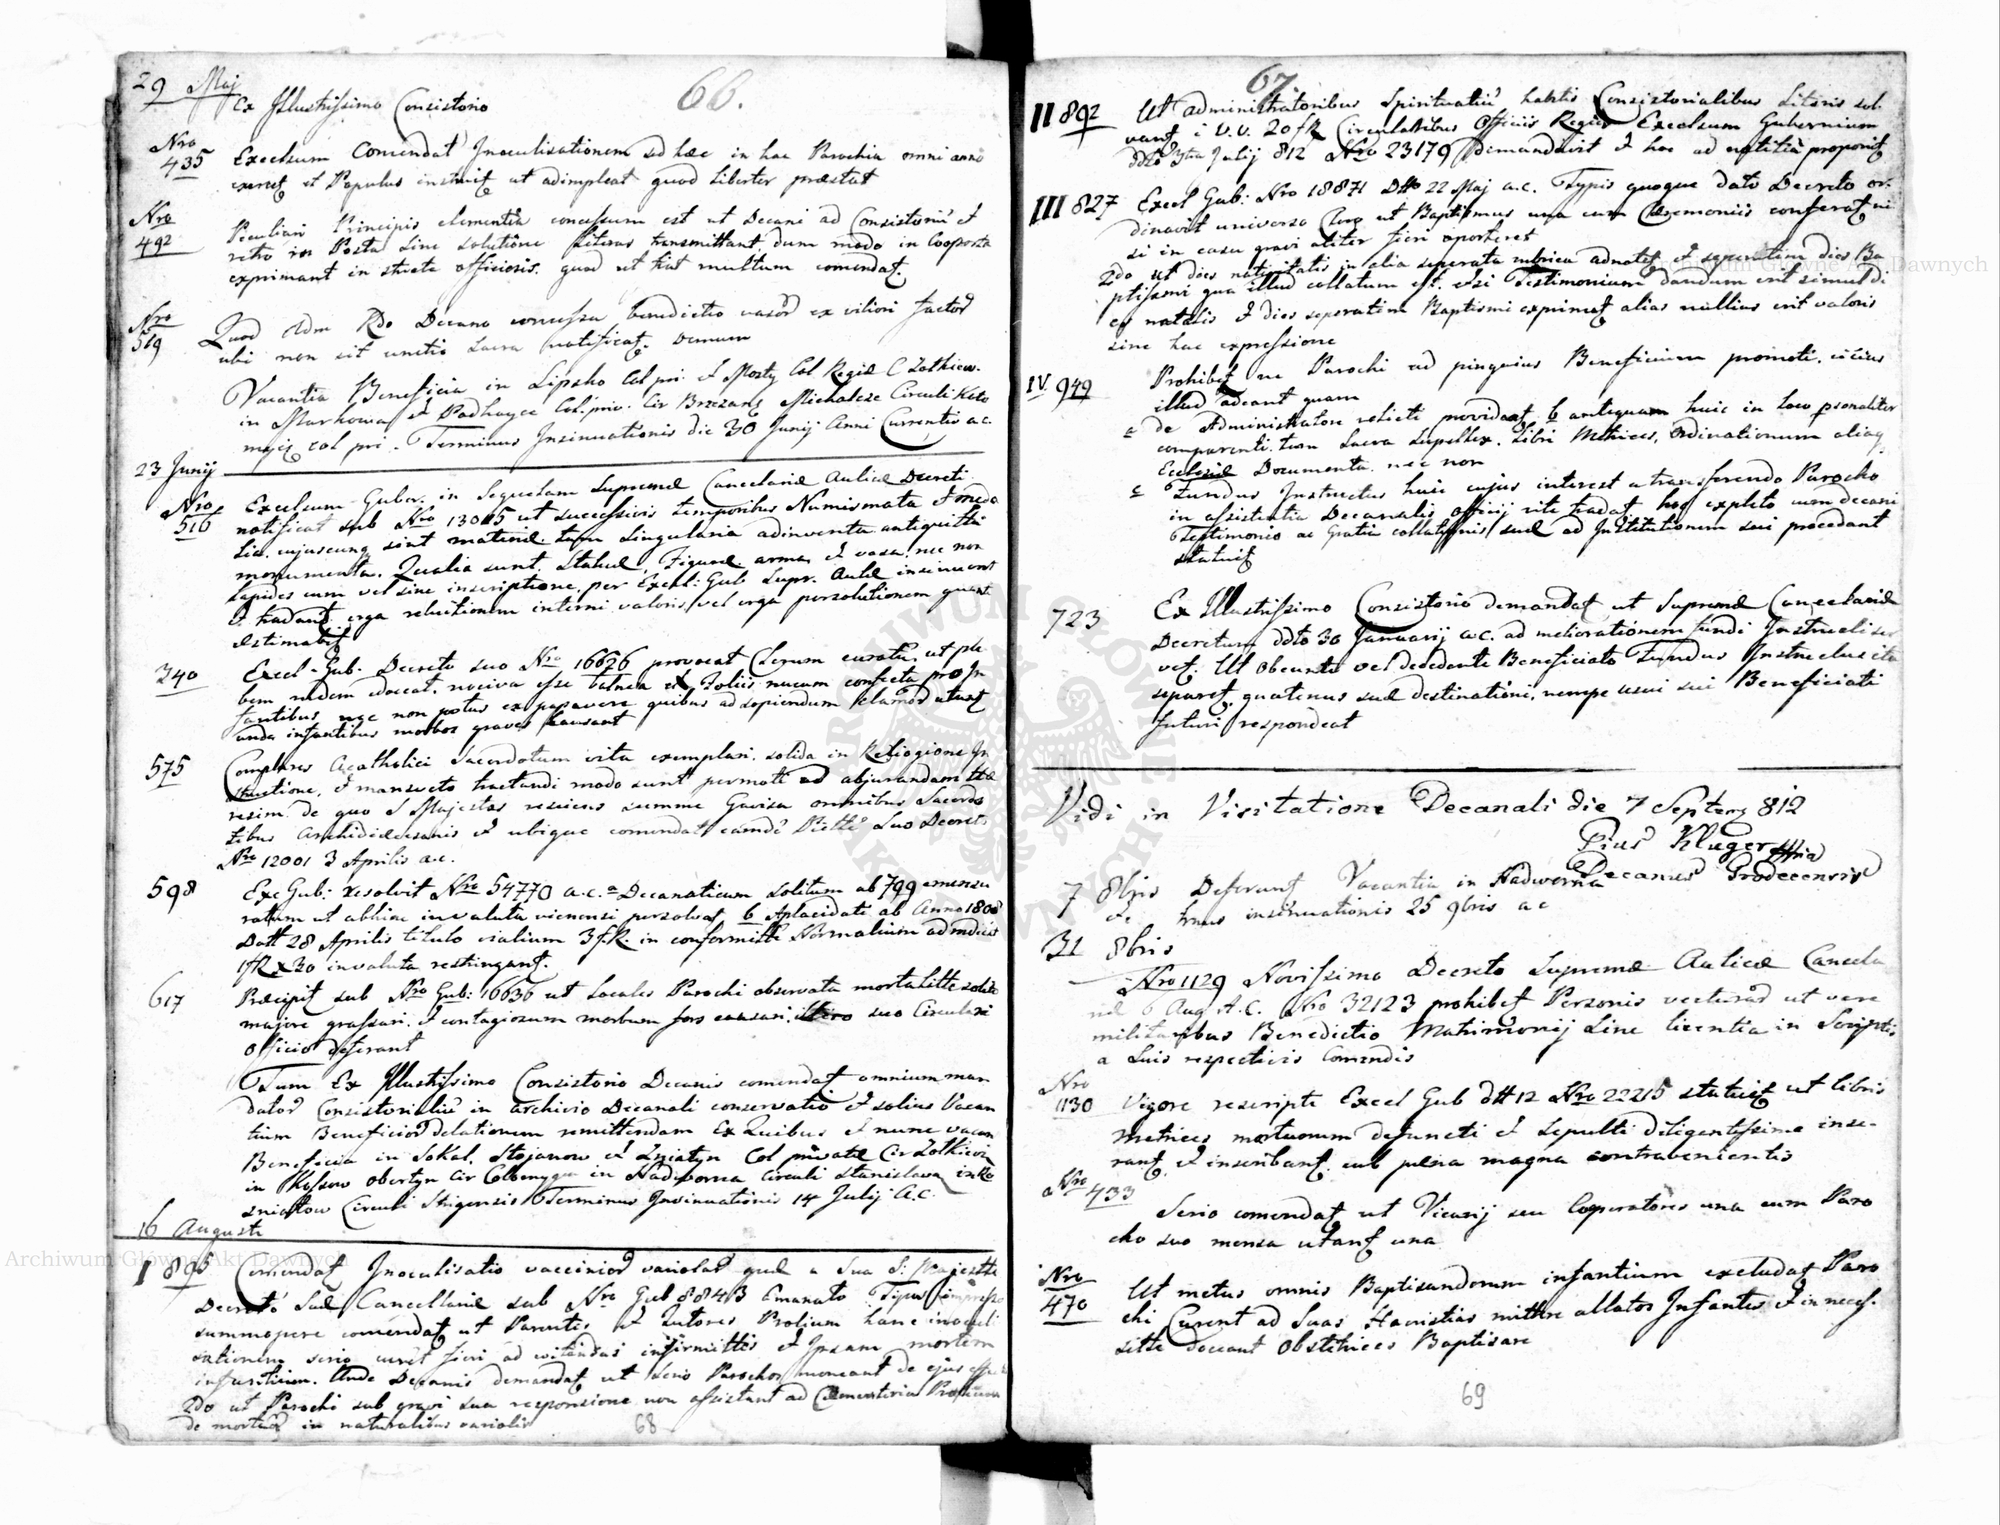 66.
29 Maj
Ex Illustrissimo Consistorio
Nro 435 Excelsum Comendat Inoculisationem ad hæc in hac Parochia omni anno
exercet et Populus instruit ut adimpleat quod Liberter præstat
Nro 492 Peculiari Principis clementia concessum est ut Decani ad Consistoriu et
retro in Posta sine solutione Literas transmittant, dum modo in Cooperta
exprimant in stricte officiosis. quod ut fiat multum comendat.
Nro 519 Quod Adm Rdo Decano concessa benedictio vasor ex viliori factor
ubi non sit unctio sacra notificat. Demum
Vacantia Beneficia in Lipsko Col pri. et Mosty Col Regiæ C Zolkiew.
in Markowa et Podhayce Col. priv. Cir Brzezan Michalcze Circuli
col pri. Terminus Insinuationis die 30 Junij Anni Currentis a.c.
23 Junij
Nro 516 Excelsum Guber. in Sequelam Supremæ Cancelariæ Aulicæ Decreti
notificat sub Nro 13015 ut successivis temporibus Numismata
cujuscunq sint materiæ tum singularia adinventa antiquitatis
monumenta. Qualia sunt. Statuæ, Figuræ arma, et vasa, nec non
Lapides cum vel sine inscriptione, per Excel. Gub Supr. Aulæ insinuent
et tradant erga reluitionem interni valoris, vel erga persolutionem quanti
æstimabit
240 Excel. Gub. Decreto suo Nro 16626 provocat Clerum curatu, ut ple
bem eadem edoceat. nociva esse balnea ex Foliis nucum confecta pro In
fantibus nec non potus ex papavere quibus ad sopiendum clamor utunt
unde infantibus morbos graves causant
575 Complures Acatholici Sacerdotum vita exemplari, solida in Religione In
structione, et mansueto tractandi modo sunt permoti ad abjurandam Hæ
resim. de quo S Majestas resciens summe Gavisa omnibus Sacerdo
tibus Archidiæcesanis et ubique comendat eamde Suo Decreto
Nro 12001 3 Aprilis a.c.
598 Exc Gub: resolvit Nro 54770 a.c. a Decanaticum solitum ab 799 emensu
ratum ut abhinc in valuta vienensi persolvat, b Aplacidati ab Anno 180
Datt 28 Aprilis titulo vialium 3 f.R. in conformitte Normalium
1fR x30 in valuta restringant.
617 Præcipit sub Nro Gub: 16636 ut Locales Parochi observata mortalitte solito
majore grassari. et contagiosum morbum fors causari, suo Circulari
Officio deferant
Tum Ex Illustrissimo Consistorio Decanis comendat omnium man
dator Consistorialiu in archivio Decanali conservatio et solius Vacan
tium Beneficior delationem remittendam Ex Quibus et nunc vacan
Beneficia in Sokal, Stojanow et Sniatyn Col privatæ Cir Zolkiew
in Kossow Obertyn Cir Colbenyga in Nadworna Circuli Stanislawa in Ko
sniatow Circuli Strigensis Terminus Insinuationis 14 Julij A.C.
16 Augusti
I 895 Comendat Inoculisatio vaccinior variolar quæ a Sua S. Majestte
Decreto Suæ Cancellariæ sub Nro Gub 8843 Emanato Tipis impresso
summopere comendat ut Parentes et Tutores Prolium hanc inoculi
sationem serio curet fieri ad evitandas infirmittes et Ipsam mortem
infantium. Unde Decanis demandat ut serio Parochos moneant de ejus
2do ut Parochi sub gravi sua responsione non assistant ad Cæmenteria
de mortuis in naturalibus variolis
68
67.
II 892 Ut administratoribus Spiritualiu habtis Consistorialibus Literis sol
vant i V.V. 20 fR Circularibus Officiis Regiis Excelsum Gubernium
ddto 3tia Julij 812 Nro 23179 demandavit et hoc ad notitia proponit
III 827 Excel Gub: Nro 18871 Dtto 22 Maj a.c. Typis quoque dato Decreto or
dinavit universo Clero ut Baptismus una cum Cæremoniis conferat ni
si in casu gravi aliter fieri oporteret
2do ut dies nativitatis in alia separata rubrica adnotet et separatim dies Ba
ptismi qua illud collatum est. et si Testimonium dandum erit simul di
es natalis et dies separatim Baptismi exprimat alias nullius erit valoris
sine hac expressione
IV. 949 Prohibet ne Parochi ad pinguius Beneficium promoti. citius
illud adeant quam
a de Administratore relicti provideat, b antequam huic in loco psonaliter
comparenti. tum Sacra Supellex. Libri Metrices, Ordinationum aliaq
Ecclesiæ Documenta. nec non
c Fundus Instructus huic cujus interest a transferendo Parocho
in assistentia Decanalis officij rite tradat hoc expleto cum decani
Testimonio ac Gratia collationis suæ ad Institutionem sui procedant
statuit
723 Ex Illustrissimo Consistorio demandat ut Supremæ Cancelariæ
Decretum ddto 30 Januarij a.c. ad meliorationem fundi Instructi ser
vet. Ut Obeunte vel dedente Beneficiato Fundus Instructus ita
separet quatenus suæ destinationi, nempe usui sui Beneficiati
futuri respondeat
Vidi in Visitatione Decanali die 7 Septem 812
Pius Kluger
Decanus Grodecensis
7 8bris Deferunt Vacantia in Nadworna
insinuationis 25 9bris a c
31 8bris
Nro 1129 Novissimo Decreto Supremæ Aulicæ Cancela
riæ 6 Aug A.C. Nro 32123 prohibet Personis vecturar ut vere
militaribus Benedictio Matrimonij sine licentia in Scriptis
a Suis respectivis Comendis
Nro 1130 Vigore rescripti Excel Gub dtt 12 Nro 22215 statuit ut libris
Metrices mortuorum defuncti et sepulti diligentissime inse
rant et inscribant, sub pæna magna contravenientis
Nro 433
Serio comendat ut Vicarij seu Coperatores una cum Paro
cho suo mensa utant una
Nro 470 Ut metus omnis Baptisandorum infantium excludat Paro
chi Curent ad Suas mittere allatos Infantes et in necess.
sitte doceant Obstetrices Baptisare
69
Archiwum Główne Akt Dawnych
Archiwum Główne Akt Dawnych
ARCHIWUM GŁÓWNE AKT DAWNYCH